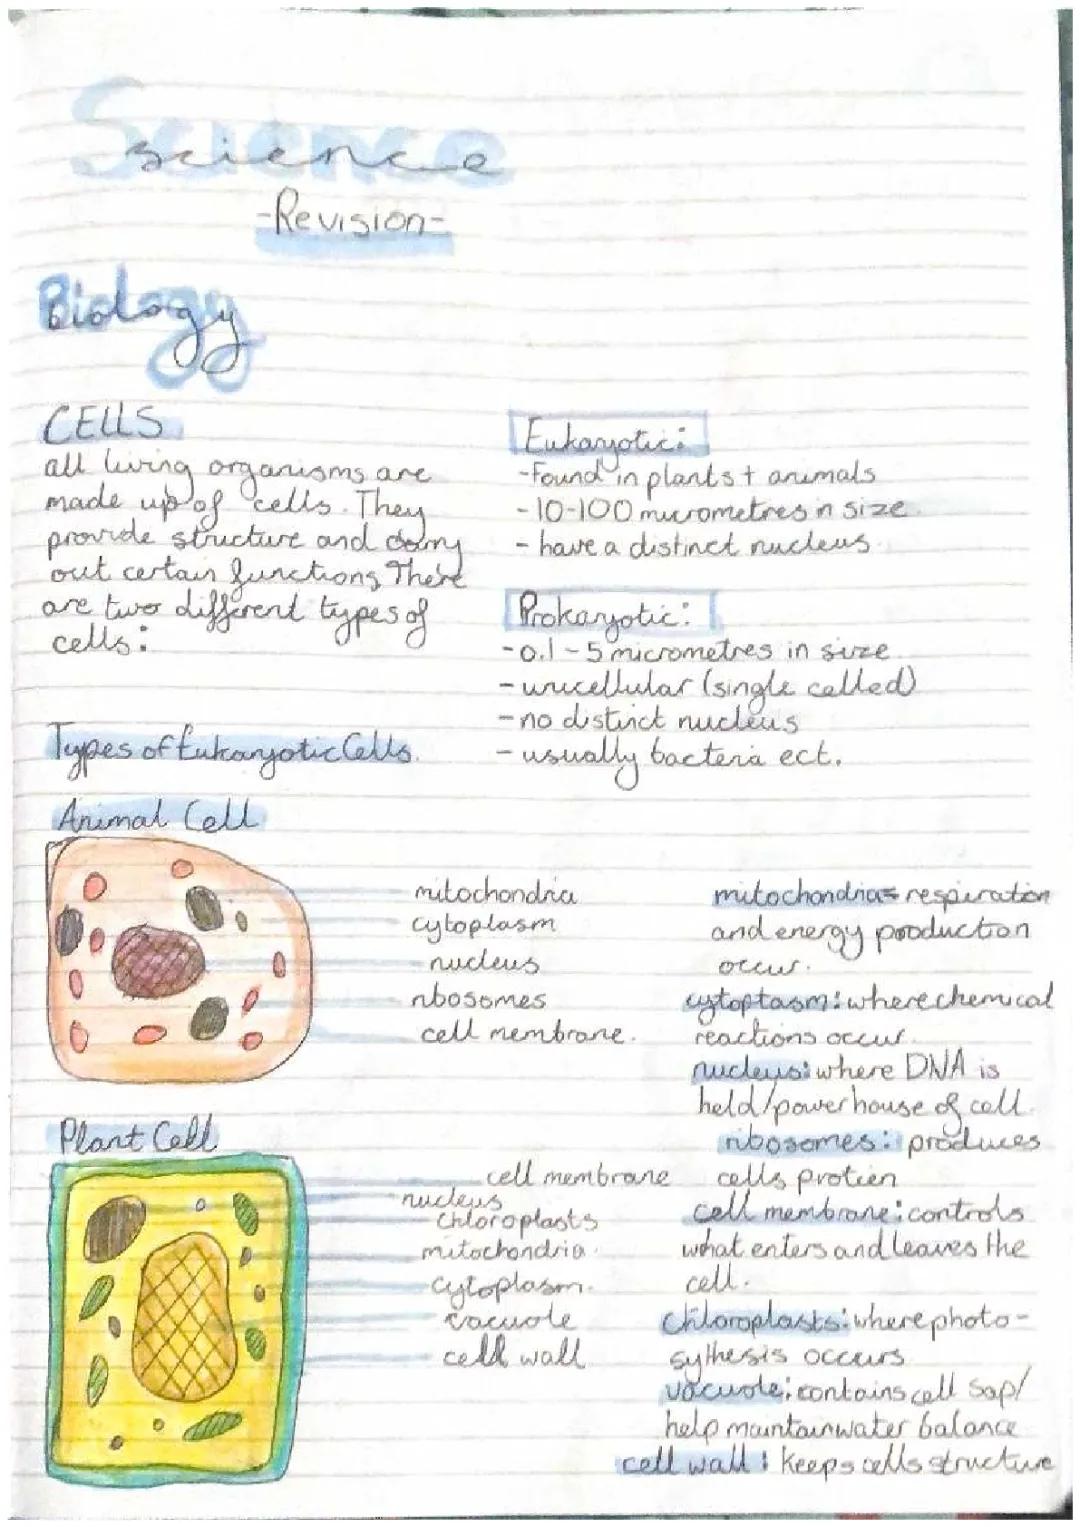 Science
science
-Revision-
Biology
CELLS
all living organisms are
made up of cells. They
provide structure and carry
out certain functions, There
are two different types of
cells:
Eukaryotic:
-Found in plants + animals
-10-100 micrometres in size.
- have a distinct nucleus.
Prokaryotic:
-0.1-5 micrometres in size.
- unicellular (single celled)
- no distinct nucleus
- usually bacteria ect.
Types of Eukaryotic Cells.
Animal Cell
mitochondria
cytoplasm
nucleus
ribosomes
cell membrane.
mitochondria= respiration
and energy production
occur.
cytoplasm: where chemical
reactions occur.
nucleus: where DNA is
held/powerhouse of cell.
ribosomes: produces
cells protien
cell membrane: controls
what enters and leaves the
cell.
chloroplasts: where photo-
sythesis occurs
vacuole: contains cell sap/
help maintain water balance
cell wall: keeps cells structure
Plant Cell
cell membrane
nucleus
chloroplasts
mitochondria.
cytoplasm.
vacuole
cell wall